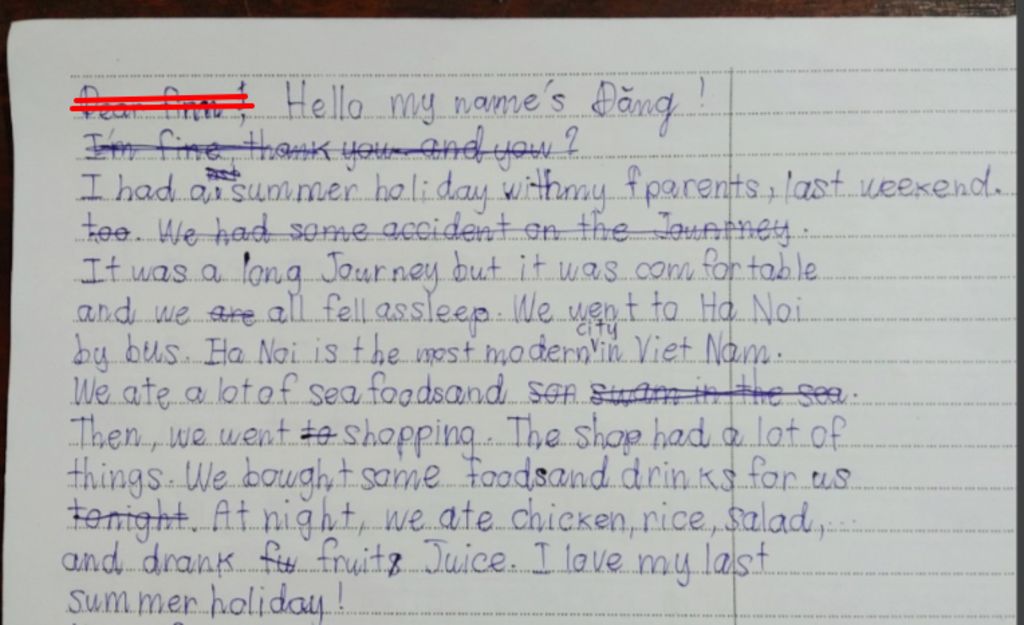 Dear Finn! Hello my name's Đăng!
I'm fine, thank you and you?
I had a summer holiday with my fparents, last weekend.
too. We had some accident on the Jounrney.
It was a long Journey but it was comfortable
and we are all fell assleep. We went to Ha Noi
city
by bus. Ha Noi is the most modern in Viet Nam.
We ate a lot of sea foods and son swam in the sea.
Then, we went to shopping. The shop had a lot of
things. We bought some foods and drinks for us
tonight. At night, we ate chicken, rice, salad,...
and drank fu fruits Juice. I love my last
summer holiday!